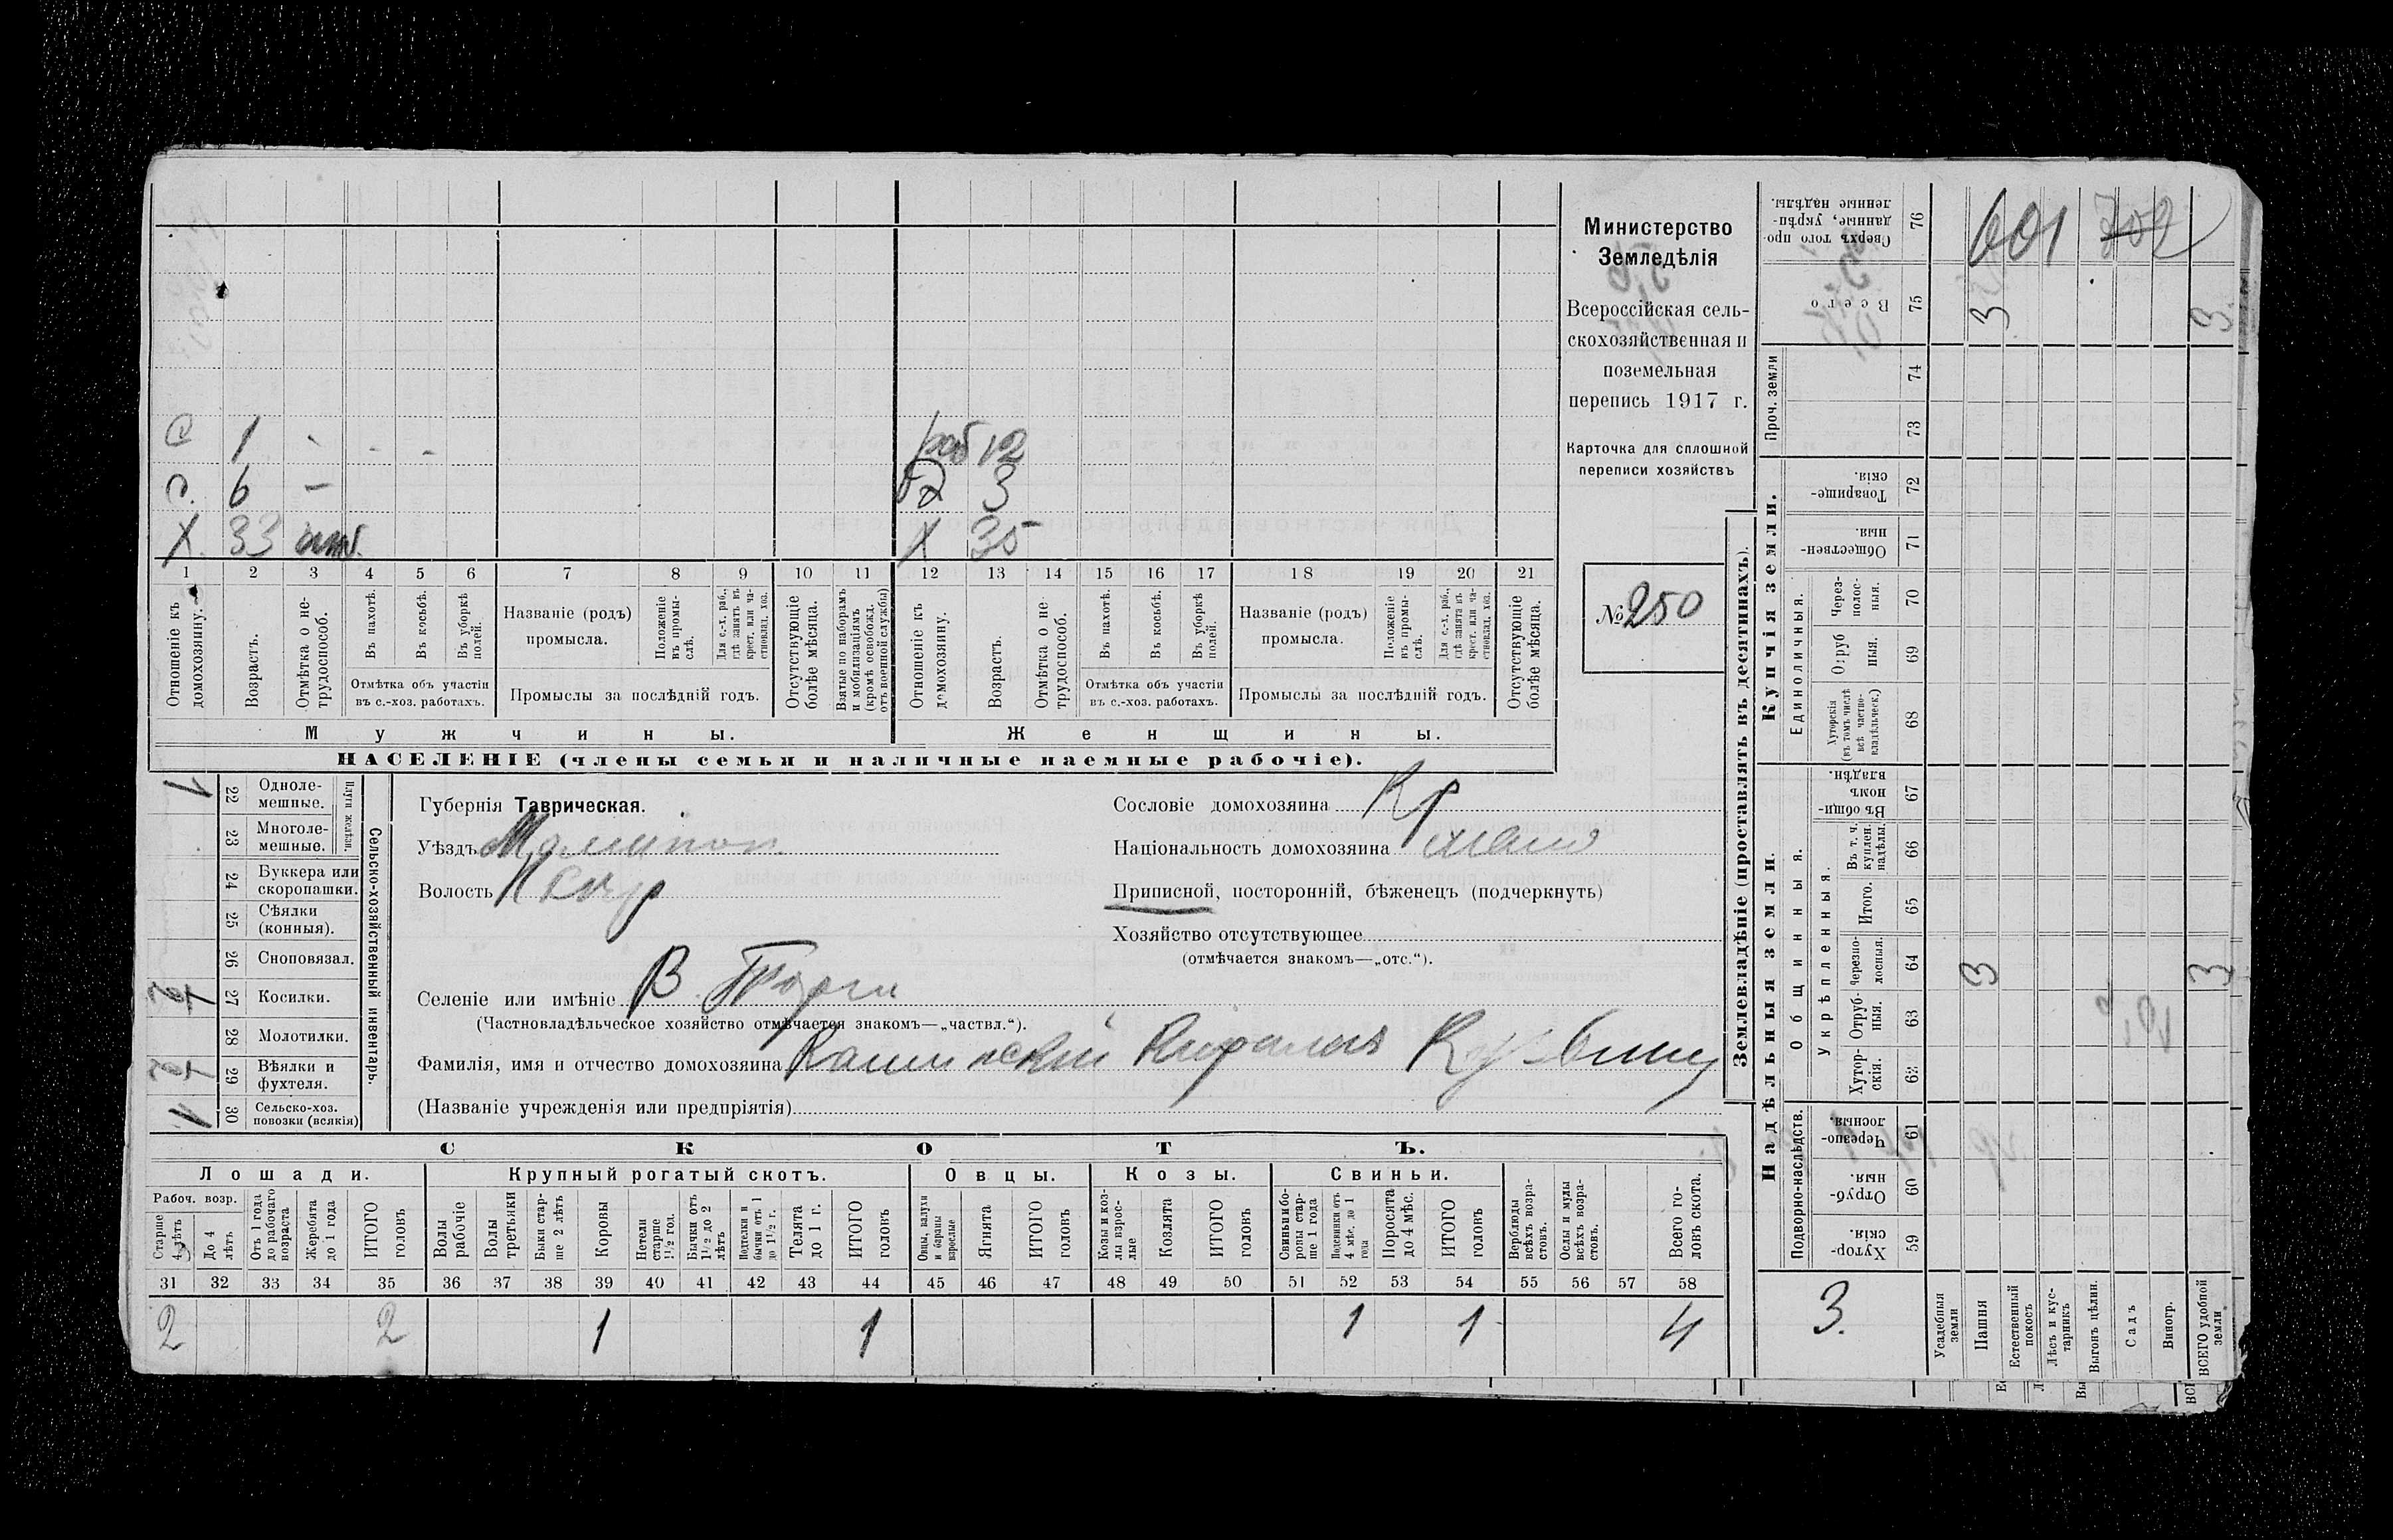 С 1 - - - раб 12
С. 6 - Д 3
Х. 33 Х 35
1 2 3 4 5 6 7 8 9 10 11 12 13 14 15 16 17 18 19 20 21
Отношеніе къ домохозяину.
Возрастъ.
Отмѣтка о нетрудоспособ.
Въ пахотѣ.
Въ косьбѣ.
Въ уборкѣ полей.
Отмѣтка объ участіи
въ с.-хоз. работахъ.
Названіе (родъ)
промысла.
Положеніе въ промыслѣ.
Для с.-х. раб., гдѣ занятъ въ крест. или частновлад. хоз.
Промыслы за послѣдній годъ.
Отсутствующіе болѣе мѣсяца.
Взятые по наборамъ и мобилизаціямъ (кромѣ освобожд. отъ военной службы)
Отношеніе къ домохозяину.
Возрастъ.
Отмѣтка о нетрудоспособ.
Въ пахотѣ.
Въ косьбѣ.
Въ уборкѣ полей.
Отмѣтка объ участіи
въ с.-хоз. работахъ.
Названіе (родъ)
промысла.
Положеніе въ промыслѣ.
Для с.-х. раб., гдѣ занята въ крест. или частновлад. хоз.
Промыслы за послѣдній годъ.
Отсутствующіе болѣе мѣсяца.
Мужчины. Женщины.
НАСЕЛЕНІЕ (члены семьи и наличные наемные рабочіе).
Министерство
Земледѣлія
Всероссійская сель-
скохозяйственная и
поземельная
перепись 1917 г.
Карточка для сплошной
переписи хозяйствъ
№ 250
Сельско-хозяйственный инвентарь.
Плуги желѣзн.
22 Одноле-
мешные.
23 Многоле-
мешные.
24 Буккера или
скоропашки.
25 Сѣялки
(конныя).
26 Сноповязал.
27 Косилки.
28 Молотилки.
29 Вѣялки и
фухтеля.
30 Сельско-хоз.
повозки (всякія)
Губернія Таврическая.
Уѣздъ Мелитоп
Волость
Селеніе или имѣніе В. Торги
(Частновладѣльческое хозяйство отмѣчается знакомъ—„частвл.“).
Фамилія, имя и отчество домохозяина
(Названіе учрежденія или предпріятія)
Сословіе домохозяина Кр
Національность домохозяина мало
Приписной, посторонній, бѣженецъ (подчеркнуть)
Хозяйство отсутствующее
(отмѣчается знакомъ—„отс.“).
СКОТЪ.
Лошади. Крупный рогатый скотъ. Овцы. Козы. Свиньи.
Рабоч. возр.
Старше 4 лѣтъ
До 4 лѣтъ
Отъ 1 года до рабочаго возраста
Жеребята до 1 года
ИТОГО головъ
Волы рабочіе
Волы третьяки
Быки старше 2 лѣтъ
Коровы
Нетели старше 1½ год.
Бычки отъ 1½ до 2 лѣтъ
Подтелки и бычки отъ 1 до 1½ г.
Телята до 1 г.
ИТОГО головъ
Овцы, валухи и бараны взрослые
Ягнята
ИТОГО головъ
Козы и козлы взрослые
Козлята
ИТОГО головъ
Свиньи и боровы старше 1 года
Подсвинки отъ 4 мѣс. до 1 года
Поросята до 4 мѣс.
ИТОГО головъ
Верблюды всѣхъ возрастовъ.
Ослы и мулы всѣхъ возрастовъ.
Всего головъ скота.
31 32 33 34 35 36 37 38 39 40 41 42 43 44 45 46 47 48 49 50 51 52 53 54 55 56 57 58
2 2 1 1 1 1 4
Землевладѣніе (проставлять въ десятинахъ).
Надѣльныя земли. Купчія земли. Проч. земли
Подворно-наслѣдств.
Общинныя.
Укрѣпленныя.
Единоличныя.
59 Хуторскія.
60 Отрубныя.
61 Черезполосныя.
62 Хуторскія.
63 Отрубныя.
64 Черезполосныя.
65 Итого.
66 Въ т. ч. куплен. надѣлы.
67 Въ общинномъ владѣн.
68 Хуторскія (въ томъ числѣ всѣ частновладѣльческ.)
69 Отрубныя.
70 Черезполосныя.
71 Общественныя.
72 Товарищескія.
73
74
75 Всего
76 Сверхъ того проданные, укрѣпленные надѣлы.
601 702
3 3
3 3
3.
Усадебныя земли
Пашня
Естественный покосъ
Лѣсъ и кустарникъ
Выгонъ цѣлин.
Садъ
Виногр.
ВСЕГО удобной земли